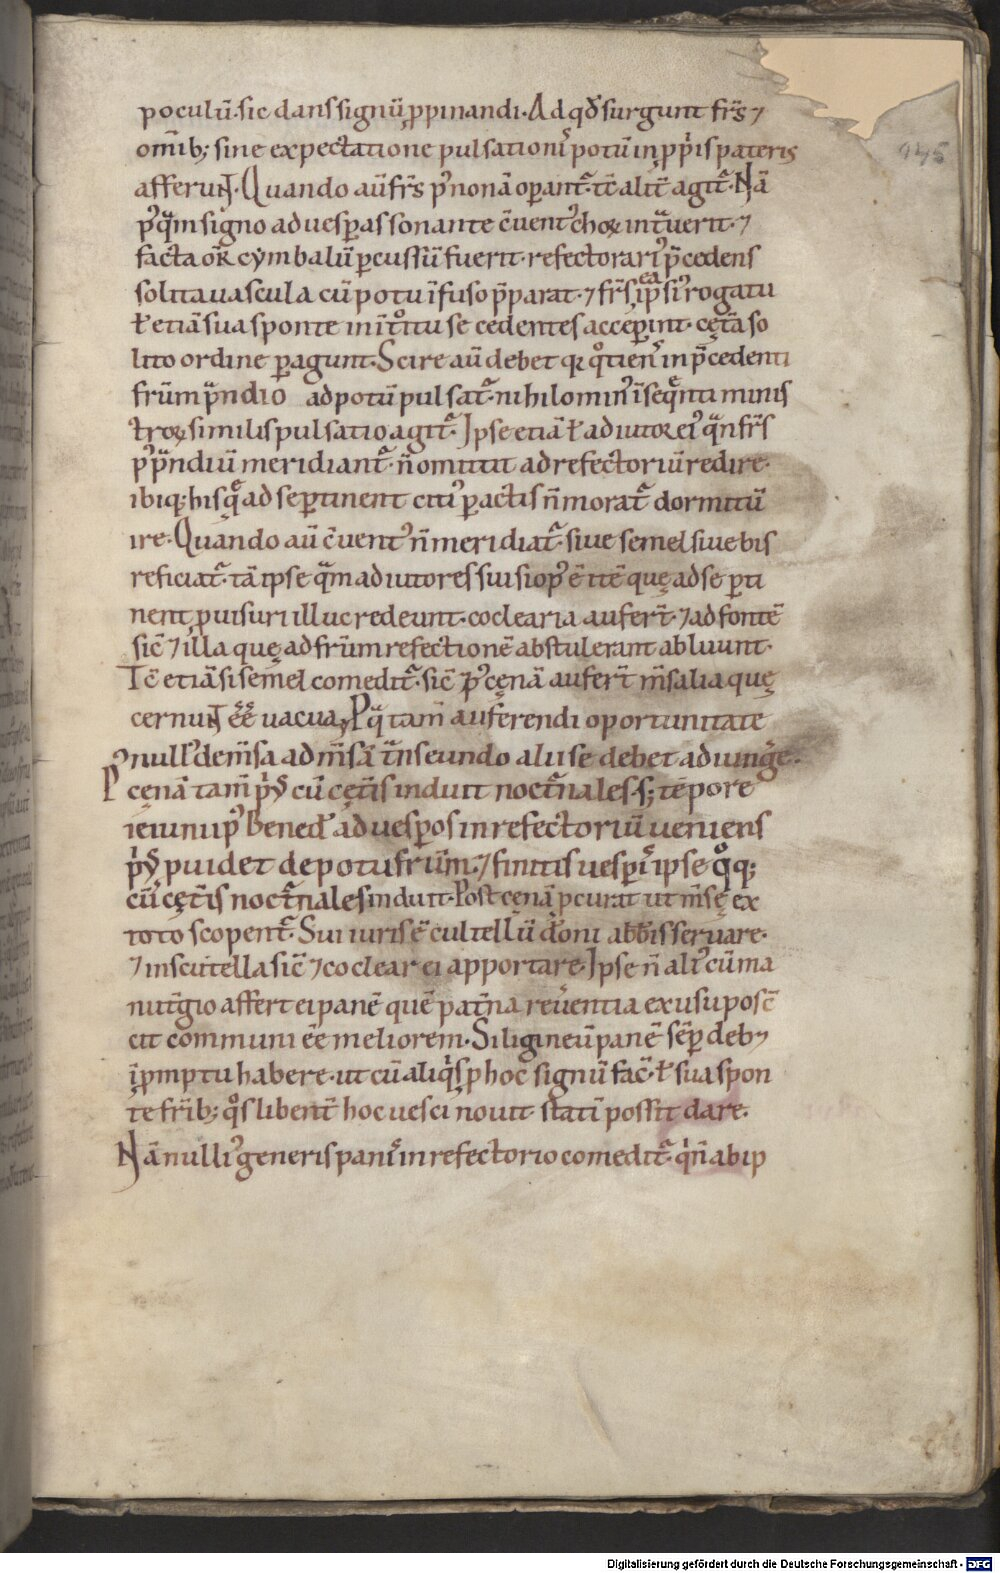 poculū. sic dans signū ꝓpinandi. Ad qđ surgunt fr̄s ⁊
om̄ib; sine expectatione pulsationiˢ potū in ꝓpͥis pateris
afferunt. Quando aū fr̄s pꝰ nonā oꝑant᷑. tc̄ alit̄ agit᷑. Nā
pꝰqͣm signo ad uesꝑas sonante c̄uentꝰ choꝝ intͣuerit. ⁊
facta or̄ cymbalū ꝑcussū fuerit. refectorariꝰ p̄cedens
solita uascula cū potu īfuso p̄parat. ⁊ fr̄s ea ip̄siꝰ rogatu
ł etiā sua sponte in īt
 se cedentes acceperint. cęta so
lito ordine ꝑagunt. Scire aū debet qꝛ qͦtienˢ in p̄cedenti
fr̄um pͣndio ad potū pulsat᷑. nihilominꝰ ī seqͣnti minis
troꝝ similis pulsatio agit᷑. Ipse etiā ł adiutor eiꝰ qͣn fr̄s
pꝰ pͣndiū meridiant᷑. n̄ omittit ad refectoriū redire.
ibiq; his q̨ͣ ad se ꝑtinent citiꝰ ꝑactis n̄ morat᷑ dormitū
ire. Quando aū c̄uentꝰ n̄ meridiat᷑. siue semel siue bis
reficiat᷑. tā ipse qͣm adiutores sui si opꝰ ē itē quę ad se ꝑti
nent ꝓuisuri illuc redeunt. coclearia aufert̄. ⁊ ad fontē
sic̄ ⁊ illa quę ad fr̄um refectionē abstulerant abluunt.
Tc̄ etiā si semel comedit᷑. sic̄ pꝰ cęnā aufert̄ m̄salia quę
cernunt ēē uacua. Pꝰqͣ tam̄ auferendi oportunitate
nullꝰ de m̄sa ad m̄sā tͣnseundo alii se debet adiung̾e.
Pꝰ cęnā tam̄ pͥꝰ cū cęt̄is induit noct᷑nales. s; tēpore
ieiunii pꝰ Bened̄ ad uesꝑos in refectoriū ueniens
pͥꝰ puidet de potu fr̄um. ⁊ finitis uesꝑiˢ ipse qͦq;
cū cęt̄is noct᷑nales induit. Post cęnā ꝓcurat ut m̄sę ex
toto scopent᷑. Sui iuris ē cultellū doni abb̄is seruare.
⁊ in scutella sic̄ ⁊ coclear ei apportare. Ipse n̄ aliꝰ cū ma
nut̄gio affert ei panē quē pat̄na reuerentia ex usu posc̄
cit communi ēē meliorem. Siligineū panē sēꝑ deb⁊
īꝓmptu habere. ut cū aliqͥs ꝑ hoc signū fac̄. ł sua spon
te fr̄ib; qͦs libent̄ hoc uesci nouit statī possit dare.
Nā nulliꝰ generis paniˢ in refectorio comedit᷑. qͥ n̄ ab ip
Digitalisierung gefördert durch die Deutsche Forschungsgemeinschaft - DFG